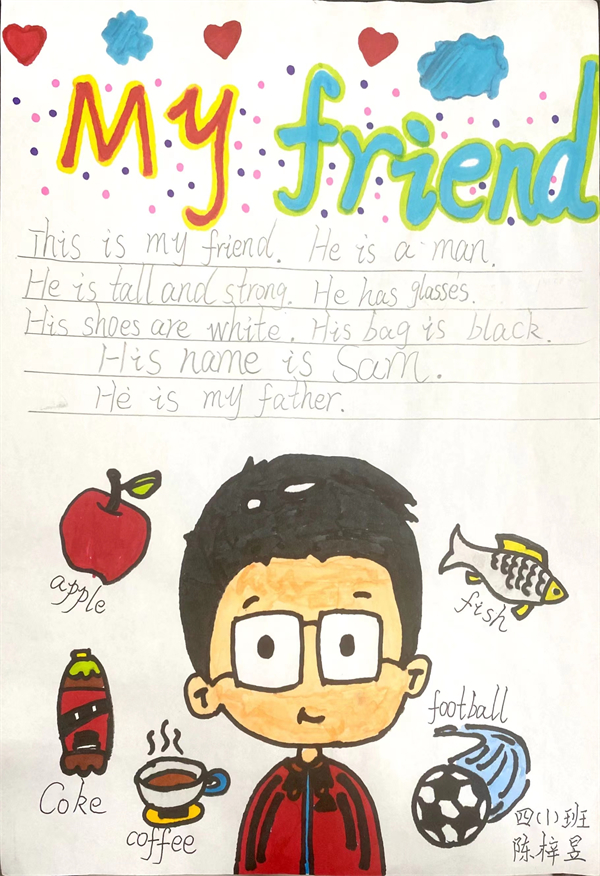 My friend
This is my friend. He is a man.
He is tall and strong. He has glasses.
His shoes are white. His bag is black.
His name is Sam.
He is my father.
apple
fish
football
Coke
coffee
四(1)班
陈梓昱